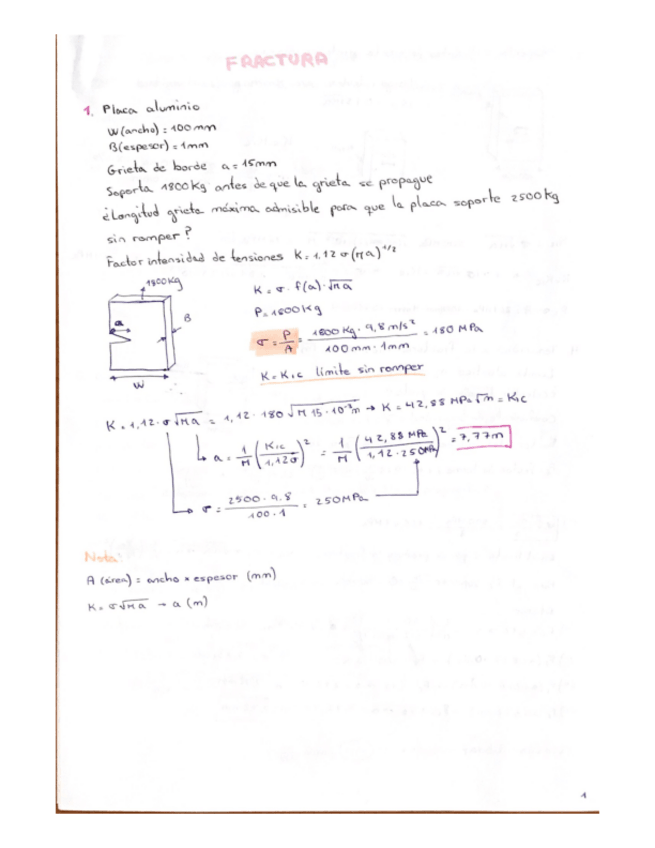 FRACTURA
1. Placa aluminio
W(ancho) = 100mm
B(espesor) = 1mm
Grieta de borde a = 15mm
Soporta 1800Kg antes de que la grieta se propague
¿Longitud grieta máxima admisible para que la placa soporte 2500Kg
sin romper?
Factor intensidad de tensiones K = 1,12 σ(πa)^1/2
1800Kg
a
B
W
K = σ · f(a) · √πa
P = 1800Kg
σ = P/A = 1800 Kg · 9,8 m/s² / 100mm · 1mm = 180 MPa
K = KIC límite sin romper
K = 1,12 · σ √πa = 1,12 · 180 √π 15 · 10⁻³m → K = 42,88 MPa √m = KIC
a = 1/π (KIC / 1,12σ)² = 1/π (42,88 MPa / 1,12 · 250MPa)² = 7,77m
σ = 2500 · 9.8 / 100 · 1 = 250MPa
Nota:
A (área) = ancho × espesor (mm)
K = σ√πa → a (m)
1